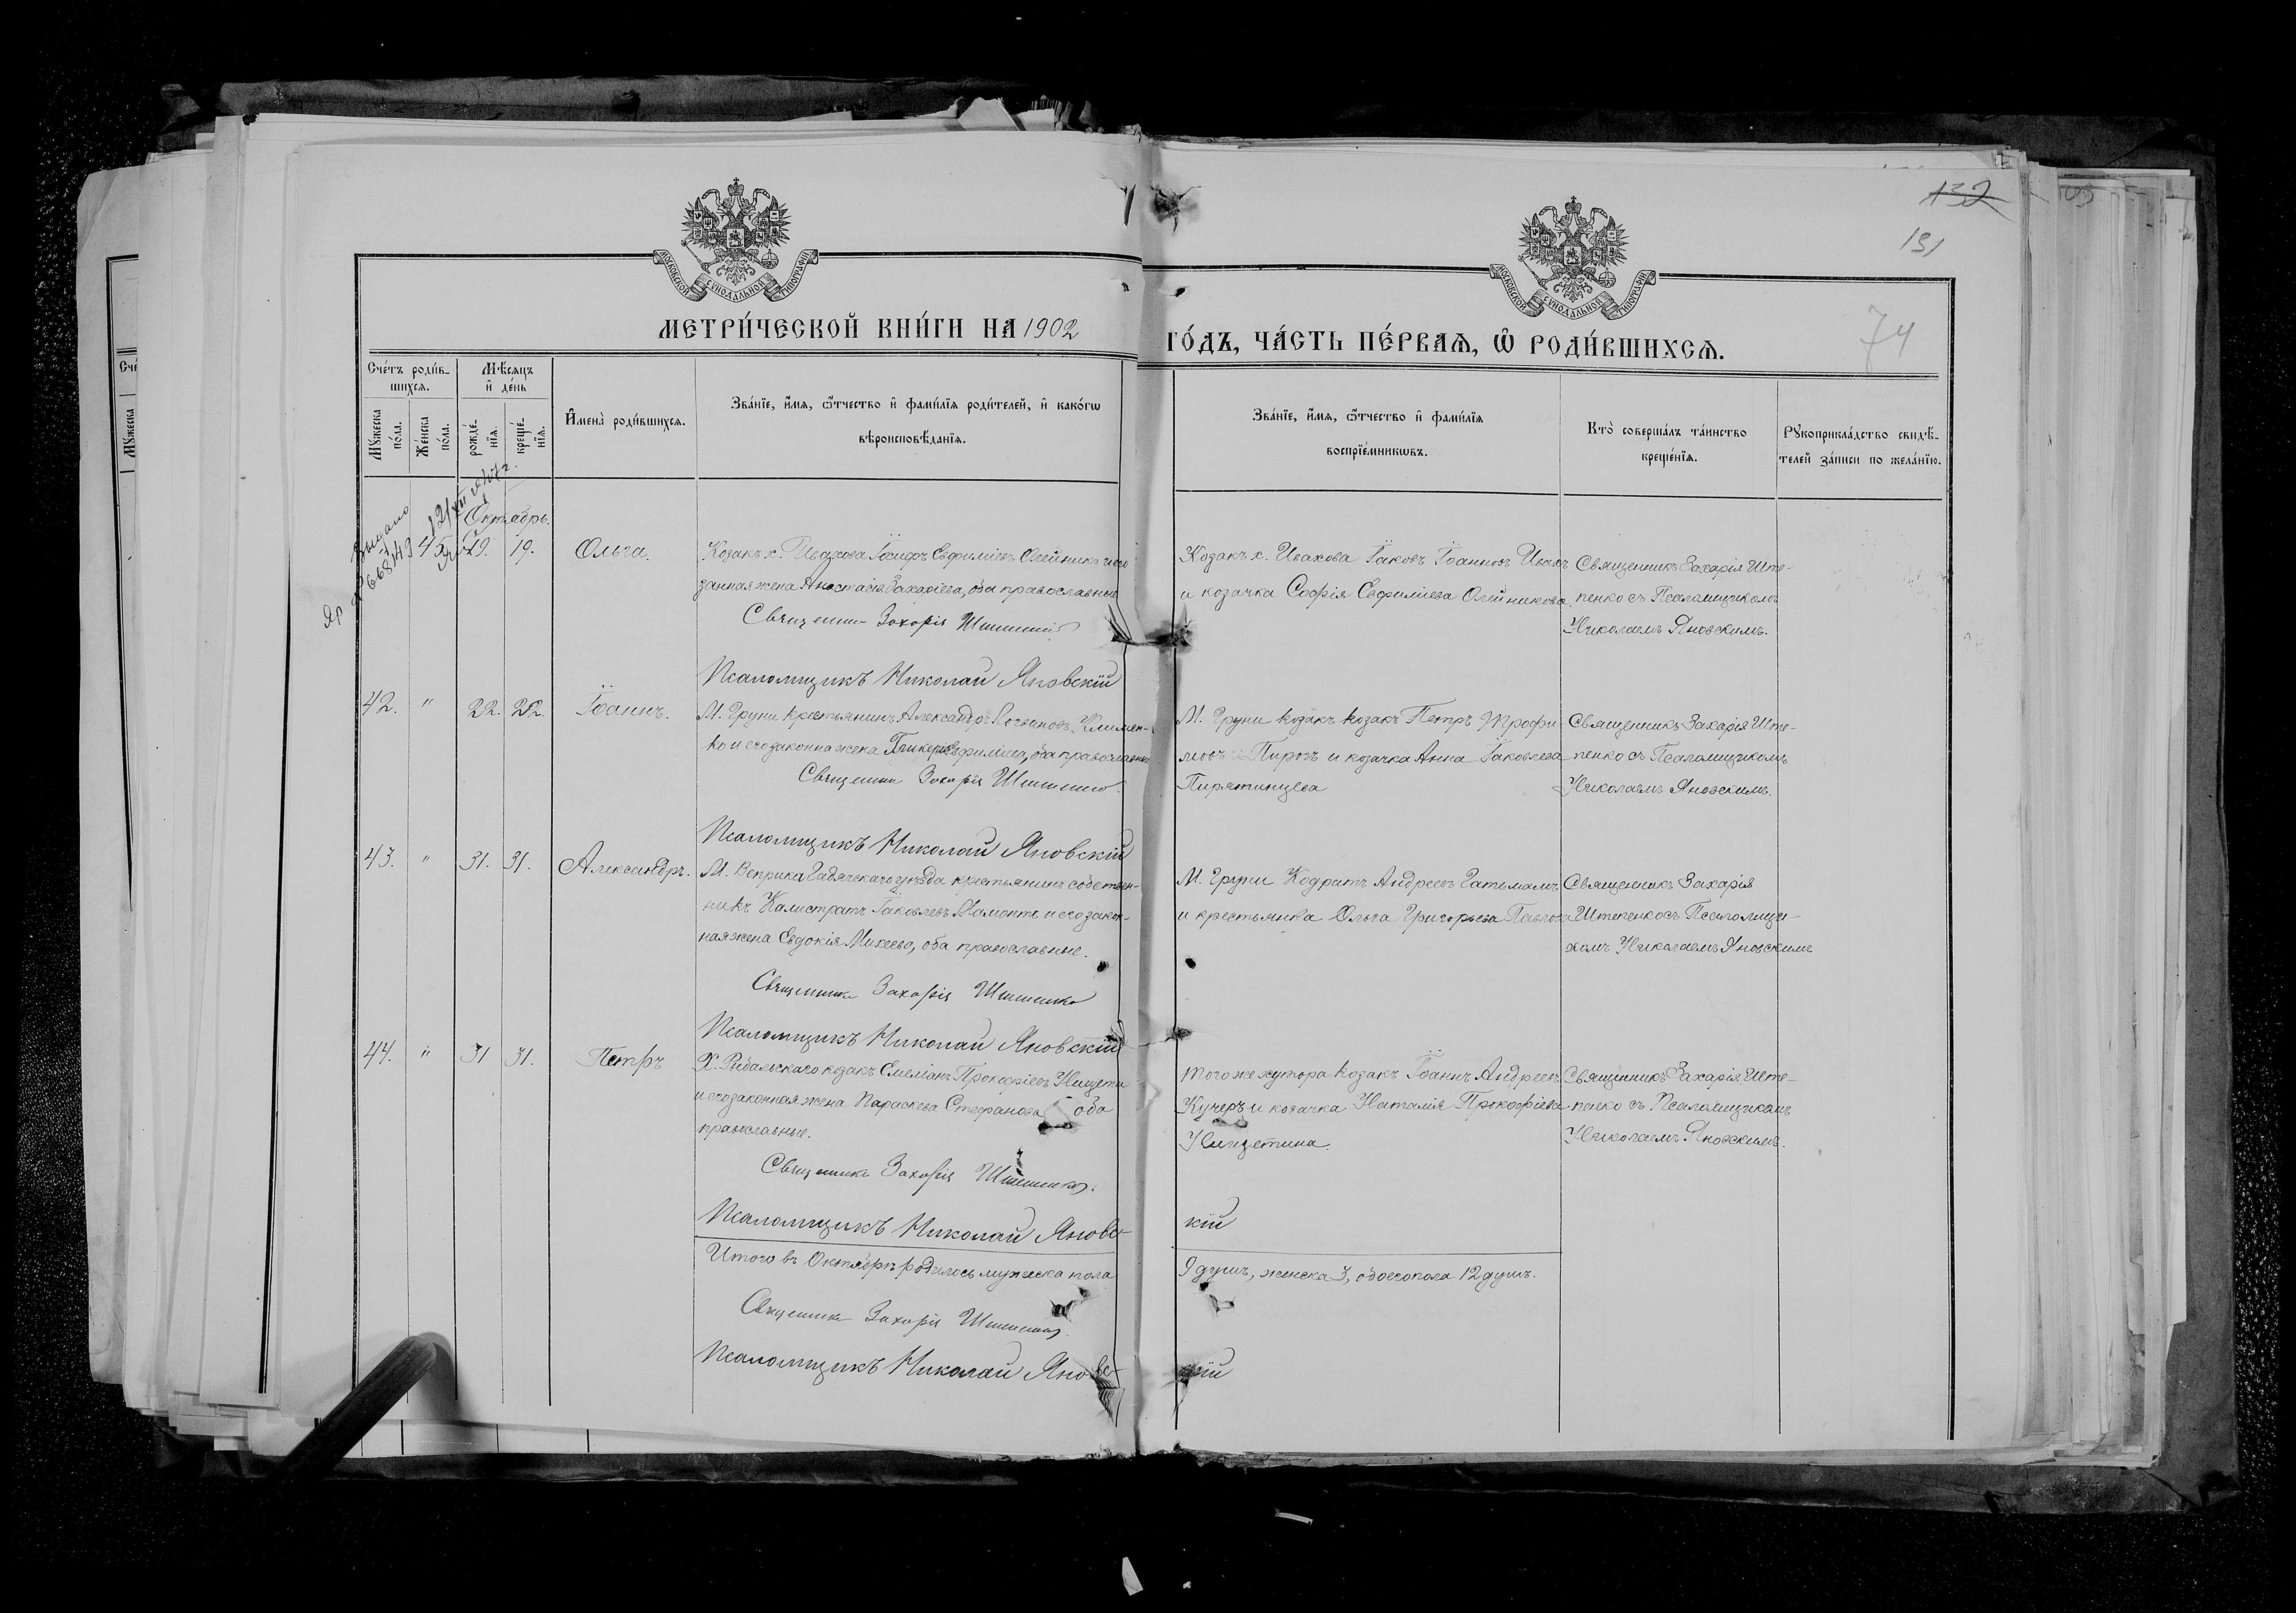 132
131
74
МОСКОВСКОЙ СУНОДАЛЬНОЙ ТИПОГРАФІИ
МОСКОВСКОЙ СУНОДАЛЬНОЙ ТИПОГРАФІИ
МЕТРИ́ЧЕСКОЙ КНИ́ГИ НА 1902 ГО́ДЪ, ЧА́СТЬ ПЕ́РВАѦ, Ѡ҆ РОДИ́ВШИХСѦ.
Сче́тъ роди́в-
шихсѧ.
Мꙋ́жеска по́ла.
Же́нска по́ла.
Мѣ́сѧцъ и҆ де́нь
рожде́-
нїѧ.
креще́-
нїѧ.
И҆мена̀ роди́вшихсѧ.
Зва́нїе, и҆́мѧ, ѻ҆́тчество и҆ фами́лїѧ роди́телей, и҆ како́гѡ
вѣроисповѣ́данїѧ.
Зва́нїе, и҆́мѧ, ѻ҆́тчество и҆ фами́лїѧ
воспрїе́мникѡвъ.
Кто̀ соверша́лъ та́инство
креще́нїѧ.
Рꙋкоприкла́дство свидѣ́-
телей за́писи по жела́нїю.
Выдано
Октябрь.
19. 19. Ольга.
Козакъ х. Ивахова Іосифъ Евфиміевъ Олейникъ и его
занная жена Анастасія Захаріева, оба православные
Священникъ Захарія
Псаломщикъ Николай Яновскій
Козакъ х. Ивахова Іаковъ Іоанновъ
и козачка Софія Евфиміева Олейникова.
Священникъ Захарія Ште-
пенко съ Псаломщикомъ
Николаемъ Яновскимъ.
42. " 22. 22. Іоаннъ.
М. Груни крестьянинъ Александръ Климен-
ко и его законна жена Евфиміева, оба православные
Священникъ Захарія
Псаломщикъ Николай Яновскій
М. Груни козакъ козакъ Петръ Трофи-
мовъ Пирогъ и козачка Анна Іаковлева
Пирятинцева
Священникъ Захарія Ште-
пенко съ Псаломщикомъ
Николаемъ Яновскимъ.
43. " 31. 31. Александръ.
М. Веприка Гадячскаго уезда крестьянинъ собствен-
никъ Калистратъ Іаковлевъ Мамонтъ и его закон-
ная жена Евдокія Михеева, оба православные.
Священникъ Захарія
Псаломщикъ Николай Яновскій
М. Груни Кодратъ Андреевъ Гатьманъ
и крестьянка Ольга Григорьева Павлова
Священникъ Захарія
Штепенко съ Псаломщи-
комъ Николаемъ Яновскимъ
44. " 31 31. Петръ
Х. Рыбальскаго козакъ Емеліанъ Прокофіевъ Нищета
и его законная жена Параскева Стефанова оба
православные.
Священникъ Захарія
Псаломщикъ Николай Яновс-
кій
Того же хутора козакъ Іоаннъ Андреевъ
Кучеръ и козачка Наталія Прокофіева
Нищетина.
Священникъ Захарія Ште-
пенко съ Псаломщикомъ
Николаемъ Яновскимъ.
Итого въ Октябрѣ родилось мужеска пола 9 душъ, женска 3, обоего пола 12 душъ.
Священникъ Захарія
Псаломщикъ Николай Яновс-
кій